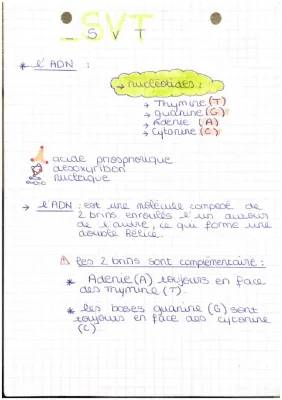 _SVT
_ S V T
* l'ADN :
→ nucléotides :
→ Thymine (T)
→ guanine (G)
→ Adenie (A)
→ Cytonine (C)
acide phosphorique
désoxyribon
nucléique
→ l'ADN : est une molécule composé de
2 brins enroulés l'un autour
de l'autre, ce qui forme une
double hélice.
⚠ les 2 brins sont complémentaire :
* Adenie (A) toujours en face
des Thymine (T).
* les bases guanine (G) sont
toujours en face des cytonine
(C)